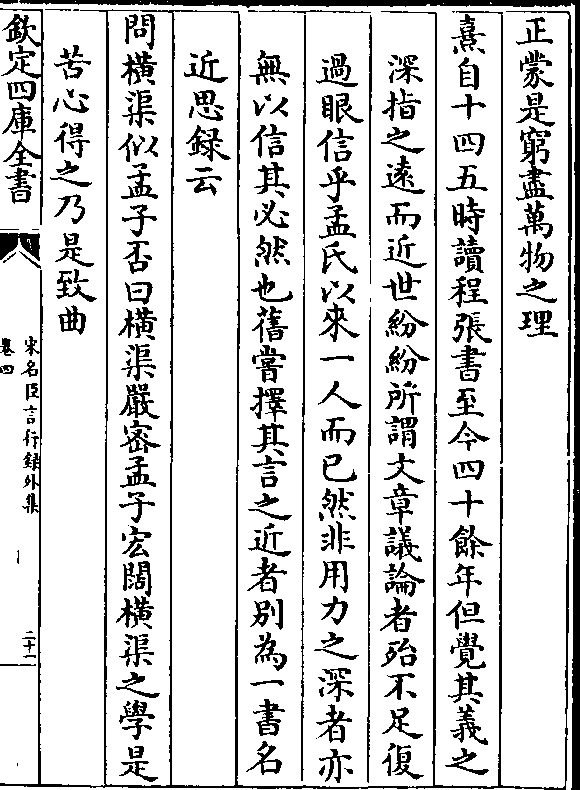 正蒙是窮盡萬物之理
熹自十四五時讀程張書至今四十餘年但覺其義之
深指之遠而近世紛紛所謂文章議論者殆不足復
過眼信乎孟氏以來一人而已然非用力之深者亦
無以信其必然也舊嘗擇其言之近者別為一書名
近思録云
問橫渠似孟子否曰橫渠嚴密孟子宏闊橫渠之學是
苦心得之乃是致曲
欽定四庫全書
宋名臣言行録外集
卷四
二十一